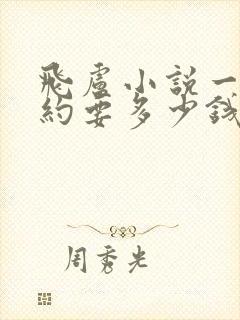 飛盧小説一
約要多少錢
周秀光